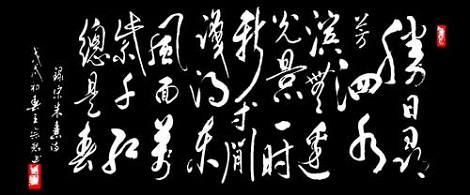 勝日尋
芳泗水
濱無邊
光景一時
新等閒
識得東
風面萬
紫千紅
總是春
錄宋朱熹詩
戊戌初春王宗